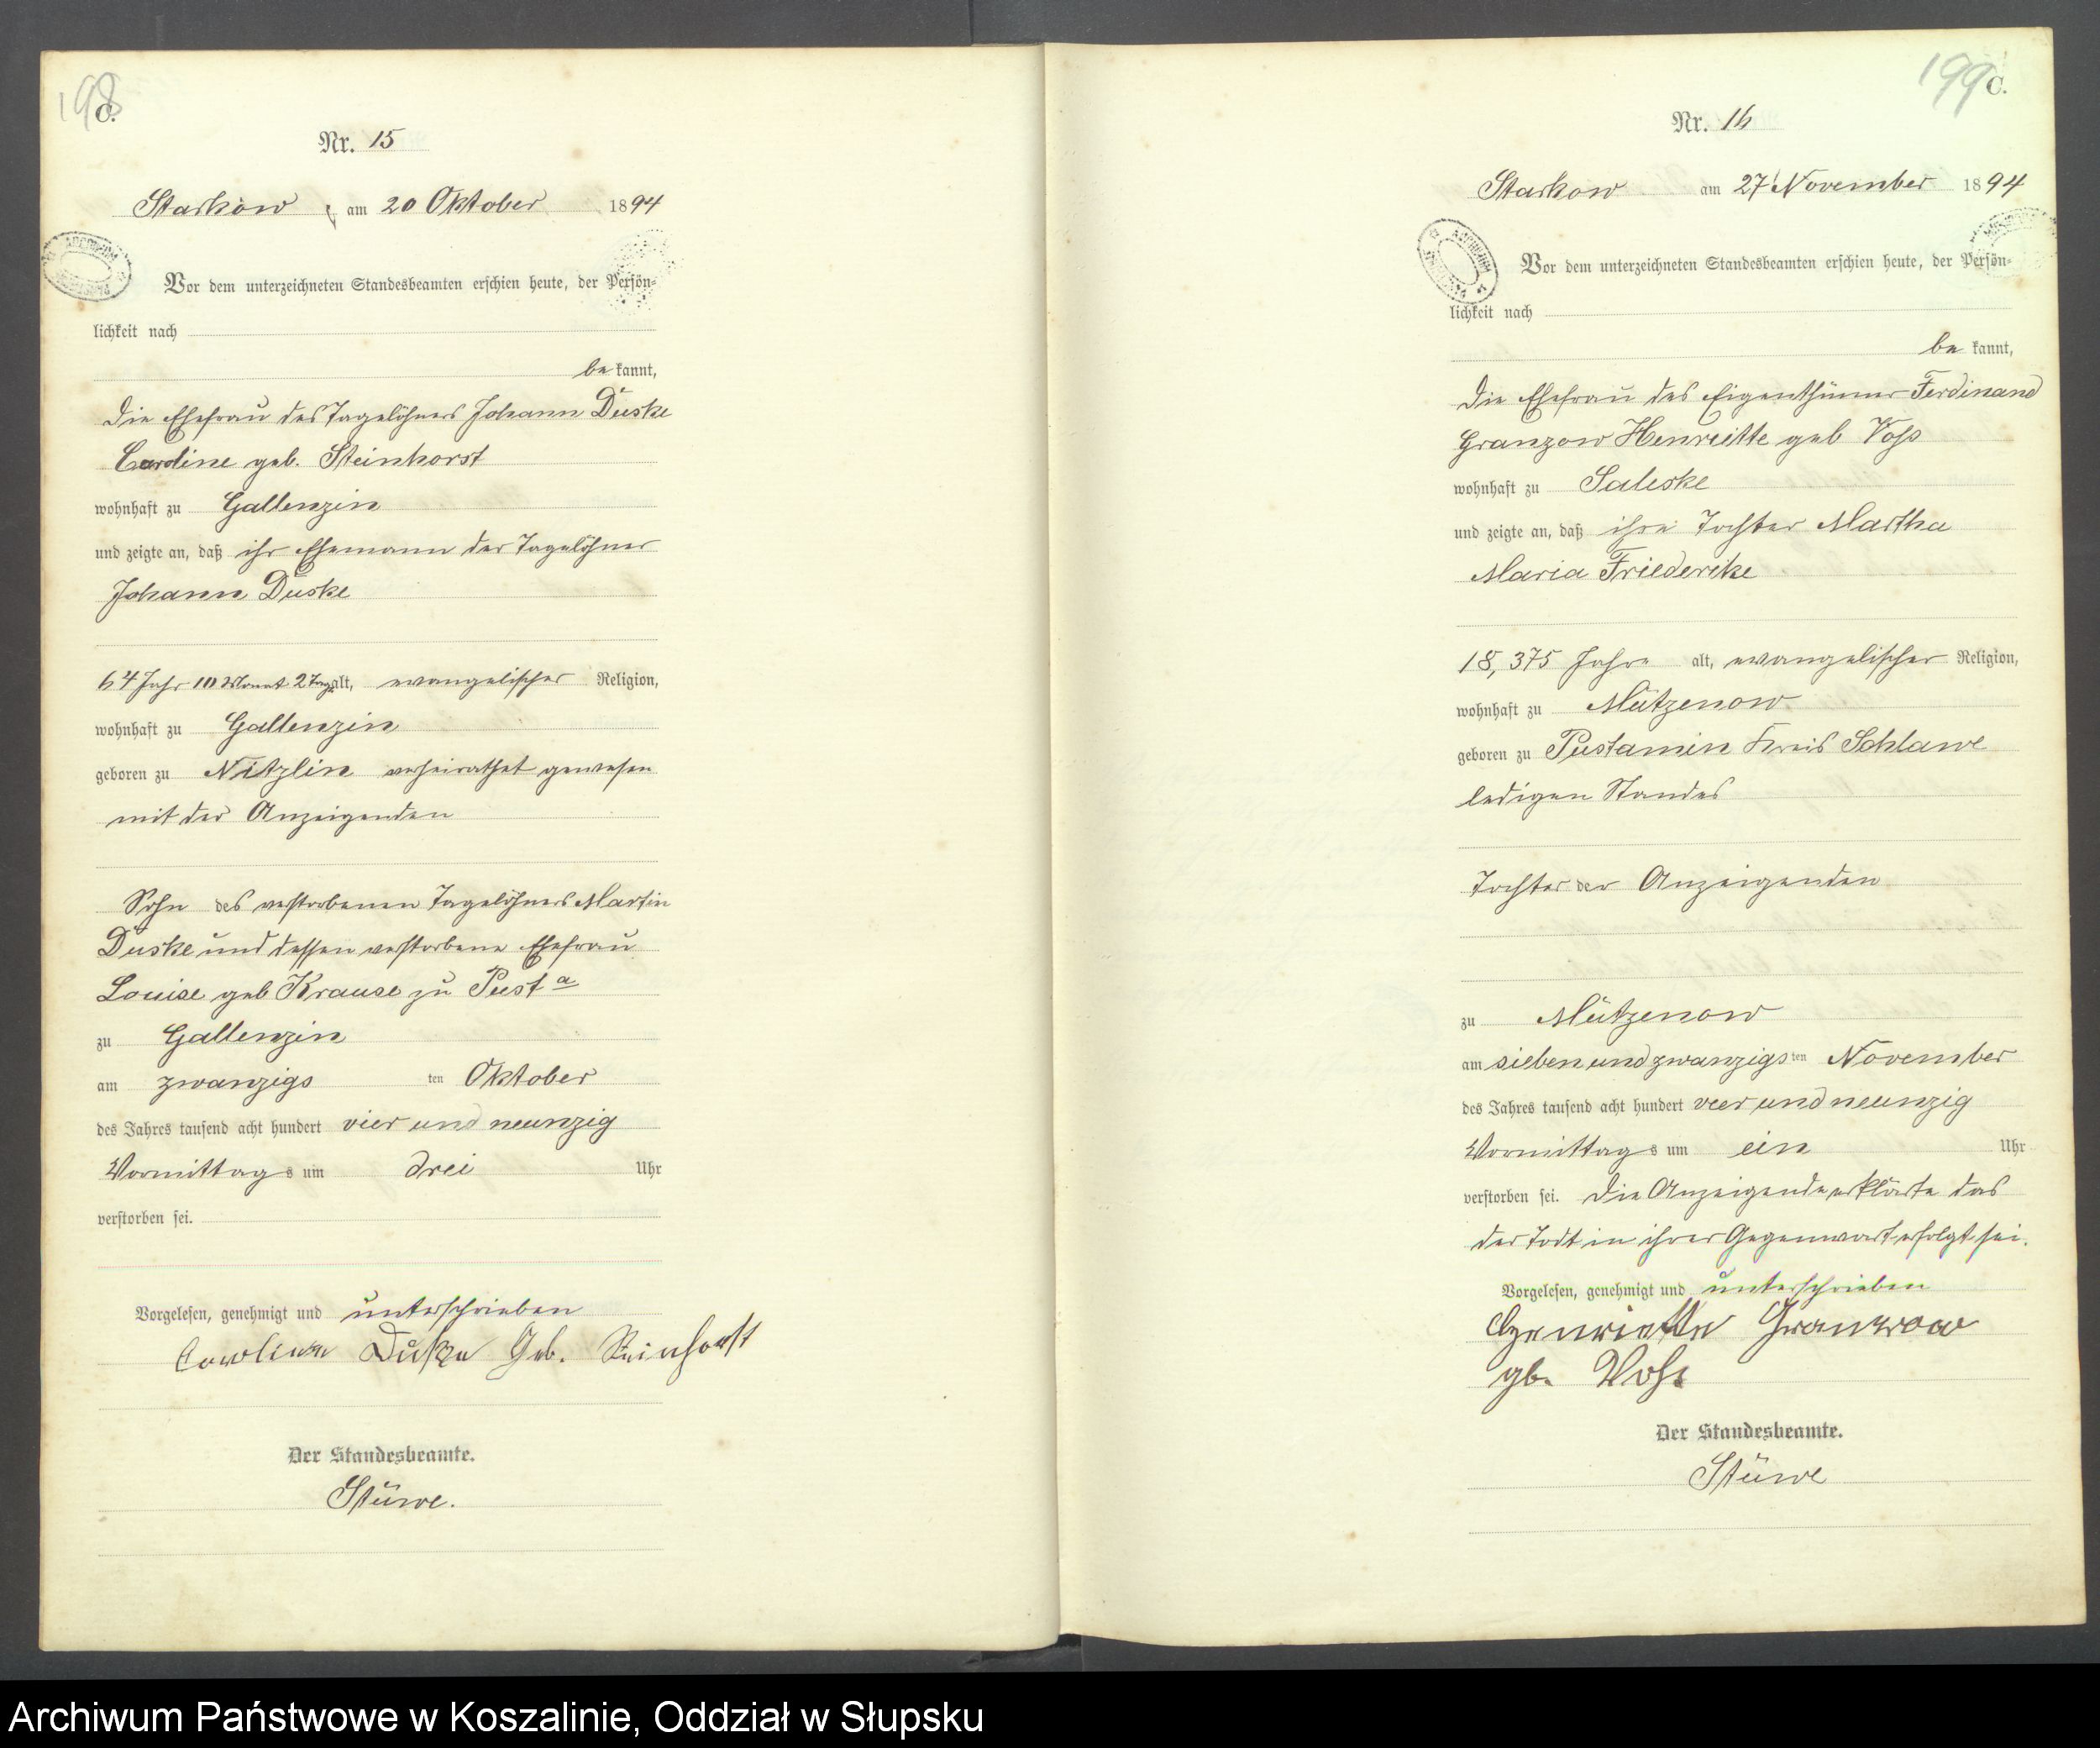 198
C.
Nr. 15
Starkow, am 20 Oktober 1894
Vor dem unterzeichneten Standesbeamten erschien heute, der Persön-
lichkeit nach
be kannt,
die Ehefrau des Tagelöhners Johann Duske
Caroline geb. Steinhorst
wohnhaft zu Gallenzin
und zeigte an, daß ihr Ehemann der Tagelöhner
Johann Duske
64 Jahr 10 Monat 2 Tage alt, evangelischer Religion,
wohnhaft zu Gallenzin
geboren zu Nitzlin verheirathet gewesen
mit der Anzeigenden
Sohn des verstorbenen Tagelöhners Martin
Duske und dessen verstorbene Ehefrau
Louise geb Krause zu Pust a
zu Gallenzin
am zwanzigs ten Oktober
des Jahres tausend acht hundert vier und neunzig
Vormittag s um drei Uhr
verstorben sei.
Vorgelesen, genehmigt und unterschrieben
Caroline Duske Geb. Steinhorst
Der Standesbeamte.
Stüwe.
199
C.
Nr. 16
Starkow am 27 November 1894
Vor dem unterzeichneten Standesbeamten erschien heute, der Persön-
lichkeit nach
be kannt,
die Ehefrau des Eigenthümer Ferdinand
Granzow Henreitte geb Voß
wohnhaft zu Saleske
und zeigte an, daß ihre Tochter Martha
Maria Friedereke
18,375 Jahre alt, evangelischer Religion,
wohnhaft zu Mützenow
geboren zu Pustamin Kreis Schlawe
ledigen Standes
Tochter der Anzeigenden
zu Mützenow
am siebenundzwanzigs ten November
des Jahres tausend acht hundert vier und neunzig
Vormittag s um ein Uhr
verstorben sei. die Anzeigende erklärte das
der Todt in ihrer Gegenwart erfolgt sei.
Vorgelesen, genehmigt und unterschrieben
Henriette Granzow
gb. Voß
Der Standesbeamte.
Stüwe
Archiwum Państwowe w Koszalinie, Oddział w Słupsku